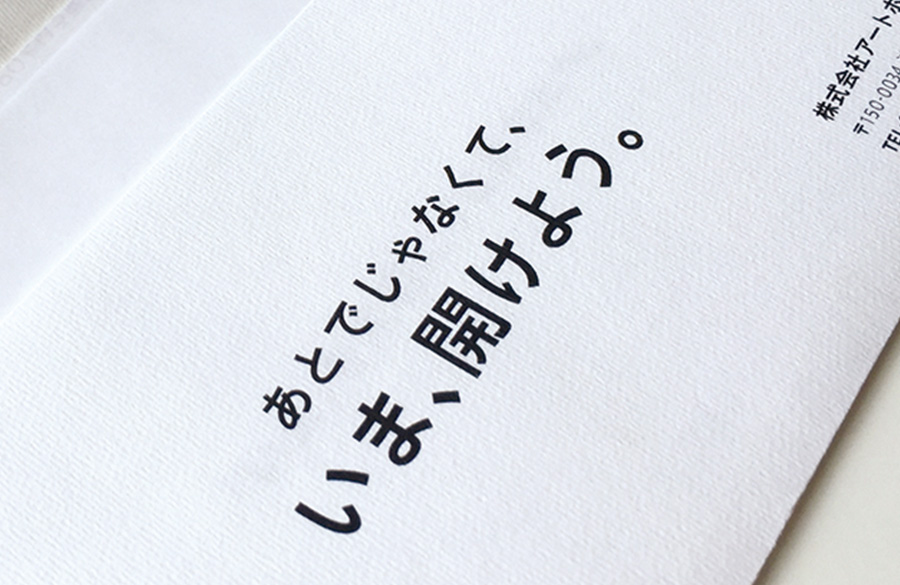 あとでじゃなくて、
いま、開けよう。
株式会社アート
〒150-0034
TEL